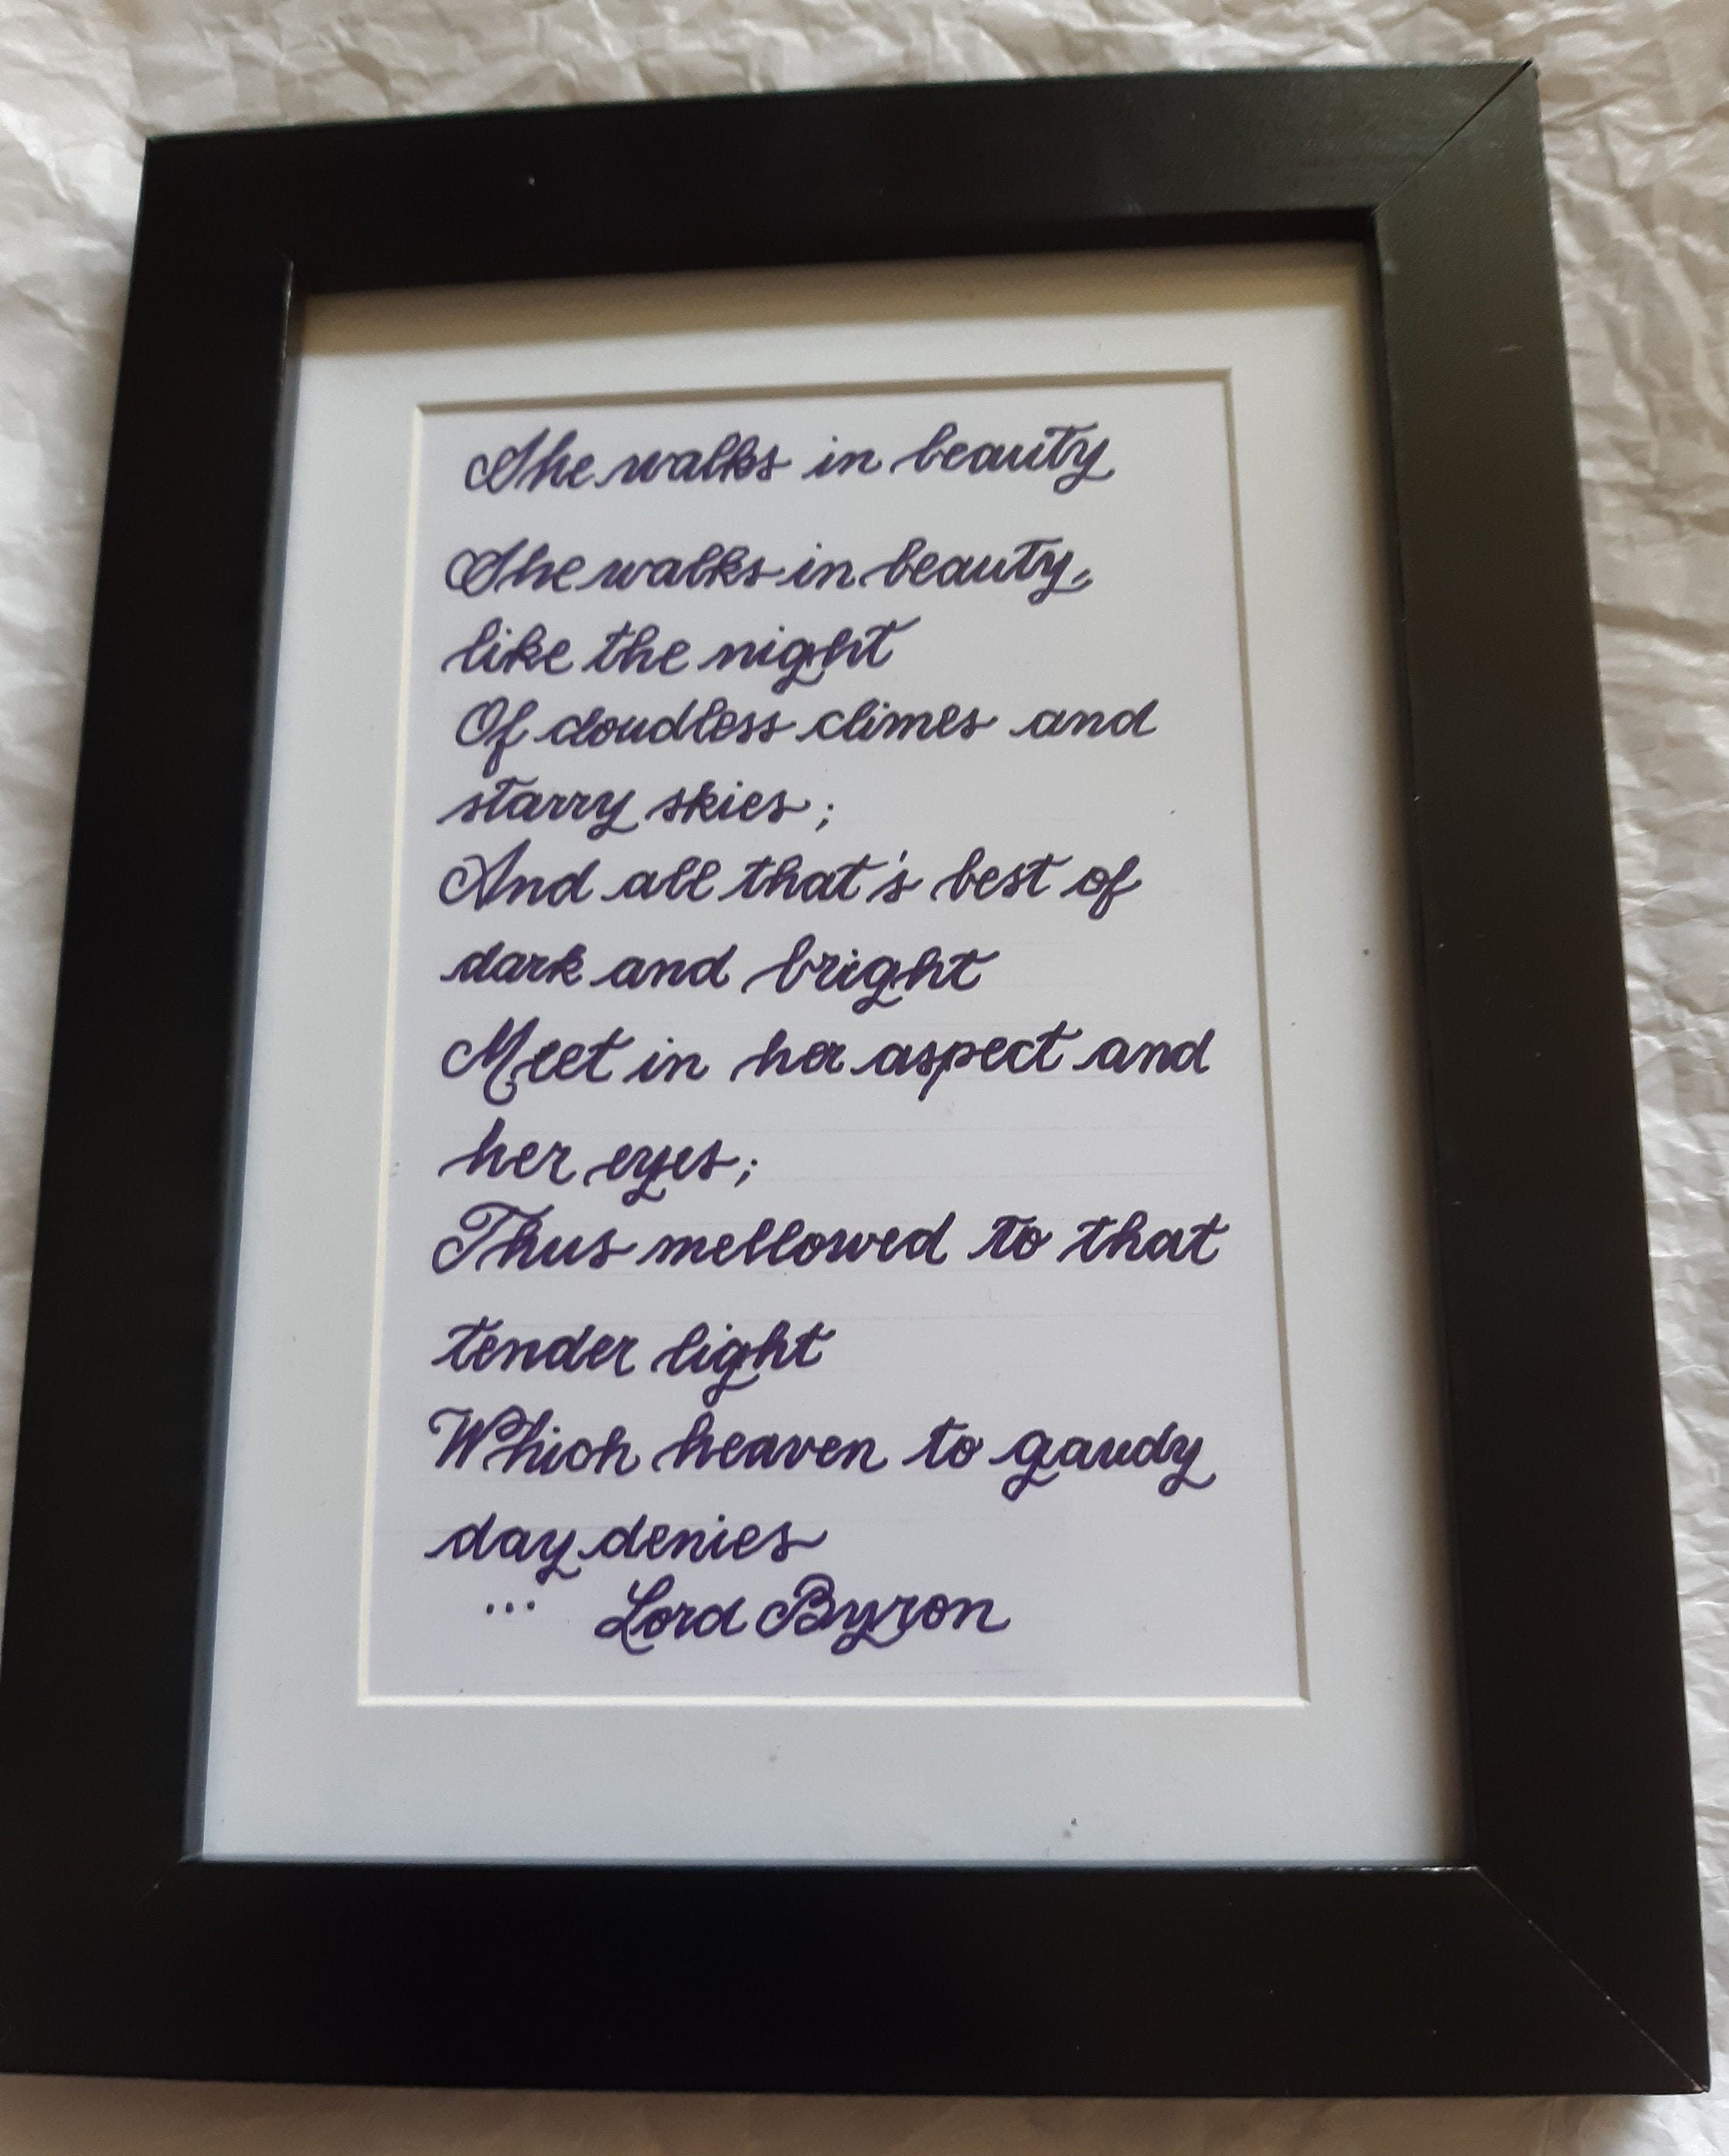 She walks in beauty
She walks in beauty,
like the night
Of cloudless climes and
starry skies;
And all that's best of
dark and bright
Meet in her aspect and
her eyes;
Thus mellowed to that
tender light
Which heaven to gaudy
day denies
... Lord Byron